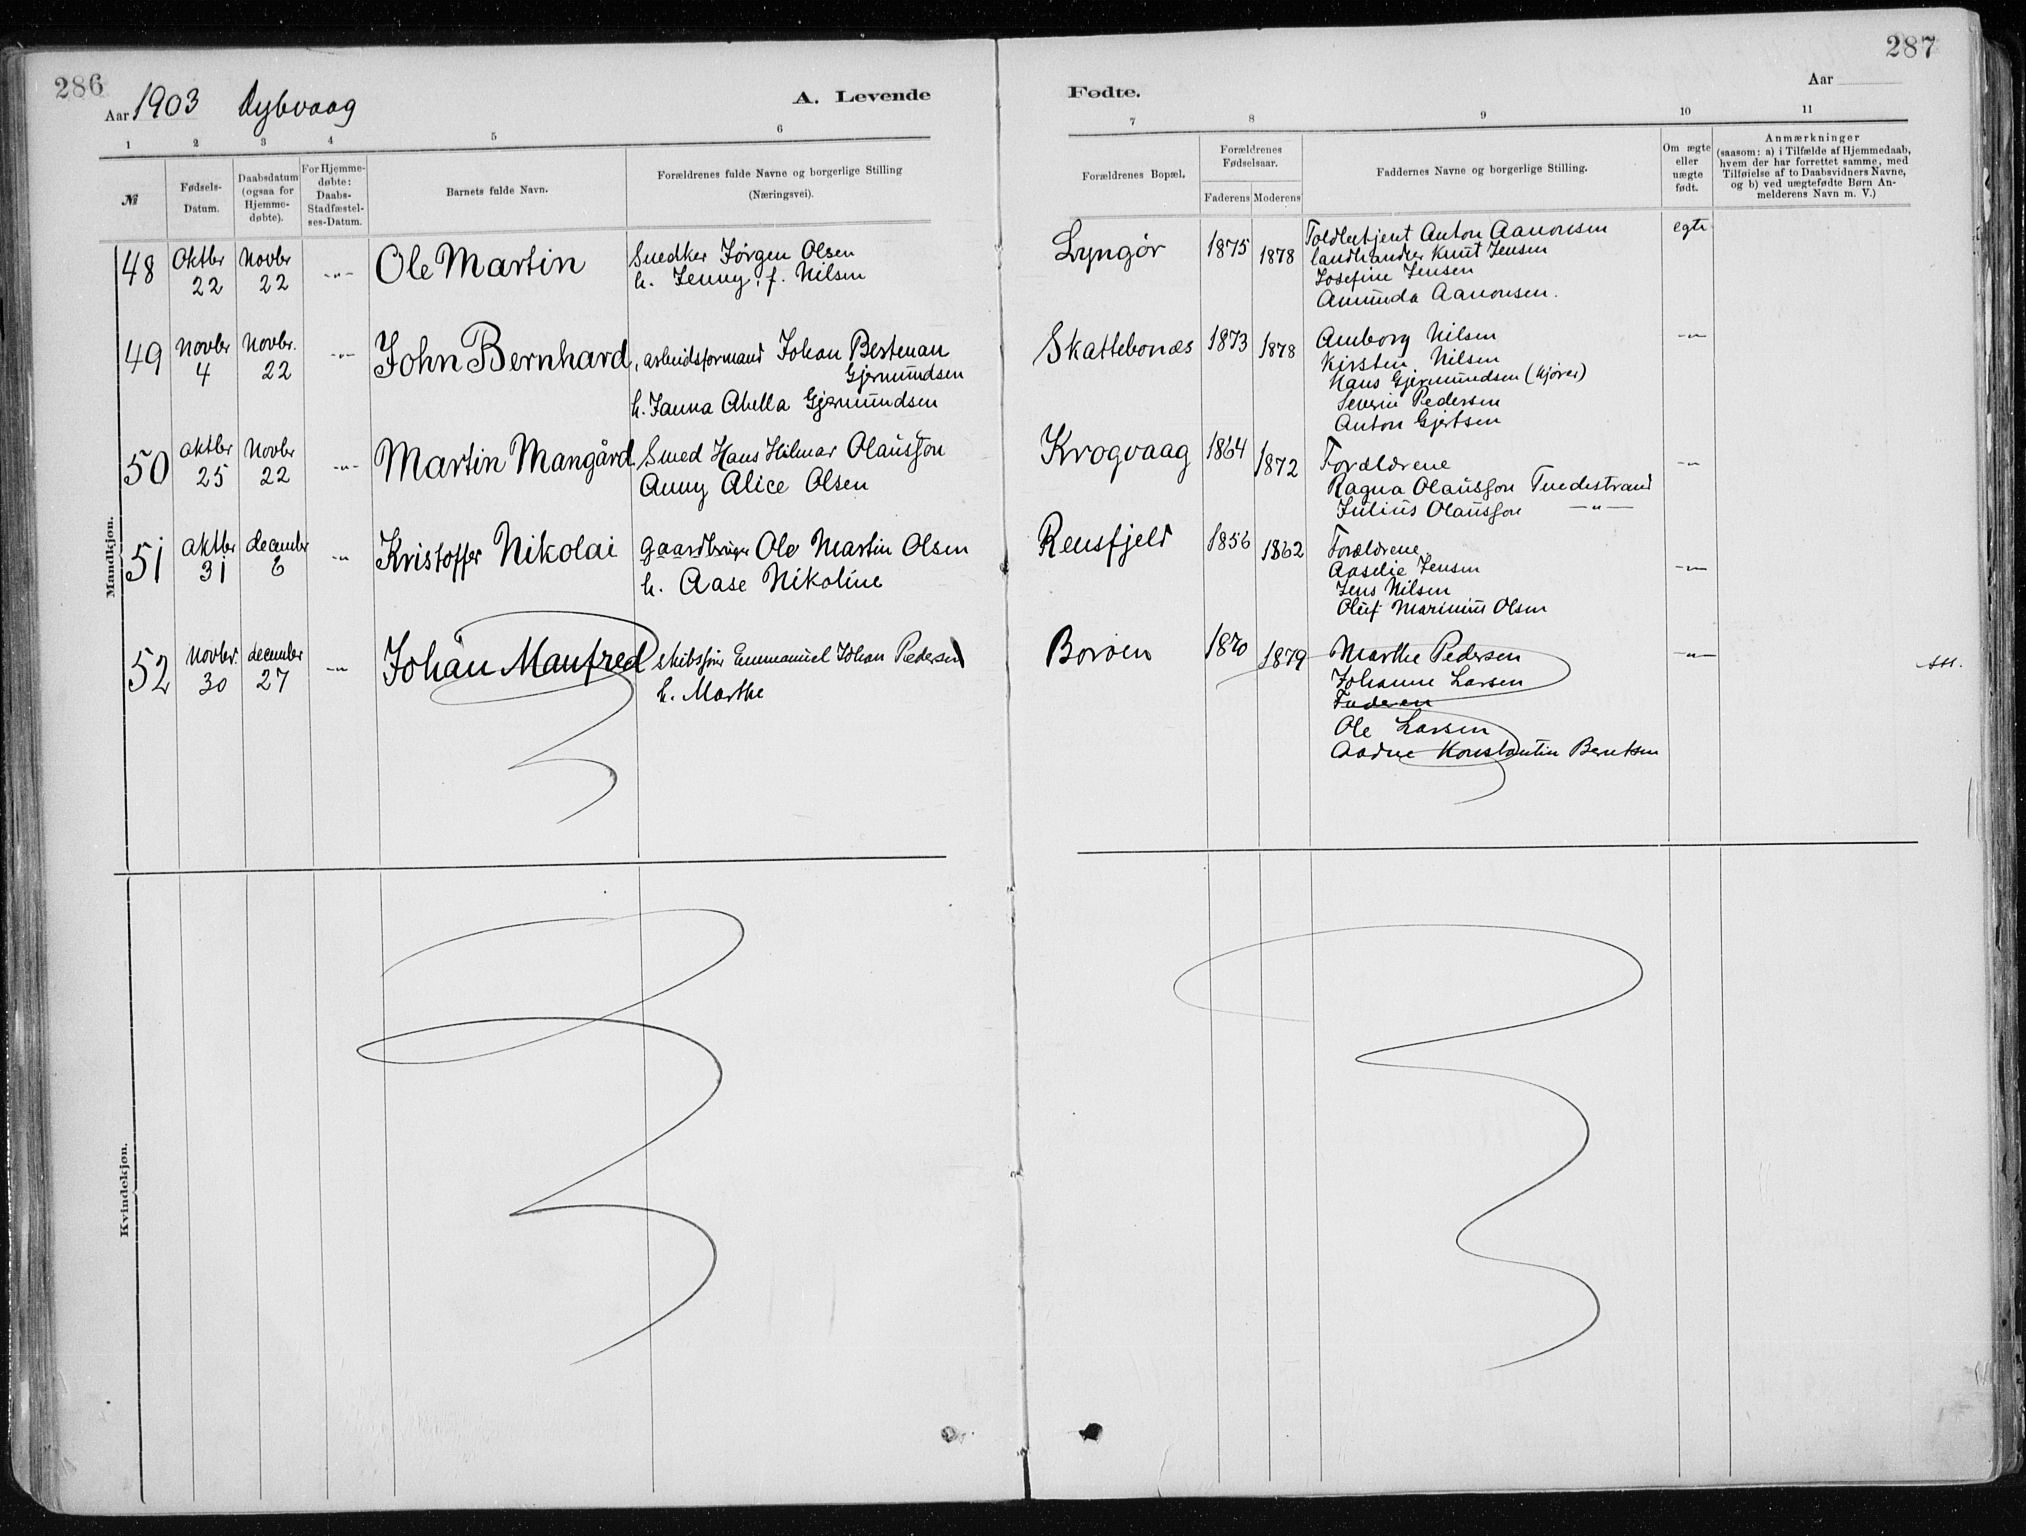 286
Aar 1903 Dybvaag
A. Levende
1 2 3 4 5 6
№
Fødsels-Datum.
Daabsdatum (ogsaa for Hjemme-døbte).
For Hjemme-døbte: Daabs-Stadfæstel-ses-Datum.
Barnets fulde Navn.
Forældrenes fulde Navne og borgerlige Stilling
(Næringsvei).
Mandkjøn.
48 Oktbr 22 Novbr 22 -"- Ole Martin
Snedker Jørgen Olsen
h. Jenny, f. Nilsen
49 Novbr 4 Novbr. 22 -"- John Bernhard
arbeidsformand Johan Bertenan
Gjermundsen
h. Janna Abella Gjermundsen
50 Oktbr 25 Novbr 22 -"- Martin Mangård
Smed Hans Hilmar Olausson
Anny Alice Olsen
51 Oktbr 31 december 6 -"- Kristoffer Nikolai
Gaardbruger Ole Martin Olsen
h. Aase Nikoline
52 Novbr. 30 december 27 -"- Johan Manfred
skibsfører Emmanuel Johan Pedersen
h. Marthe
Kvindekjøn.
287
Aar
Fødte.
7 8 9 10 11
Forældrenes Bopæl.
Forældrenes Fødselsaar.
Faderens Moderens
Faddernes Navne og borgerlige Stilling.
Om ægte eller uægte født.
Anmærkninger
(saasom: a) i Tilfælde af Hjemmedaab,
hvem der har forrettet samme, med
Tilføielse af to Daabsvidners Navne,
og b) ved uægtefødte Børn An-
melderens Navn m. V.)
Lyngør 1875 1878
Toldbetjent Anton Aanonsen egte
Landhandler Knut Jensen
Josefine Jensen
Amunda Aanonsen.
Skattebonæs 1873 1878
Amborg Nilsen -"-
Kirsten Nilsen
Hans Gjermundsen (Kjører)
Severin Pedersen
Anton Gjertsen
Krogvaag 1864 1872
Forældrene -"-
Ragna Olausson Tvedestrand
Julius Olausson -"-
Rensfjeld 1856 1862
Forældrene
Aaselie Jensen -"-
Jens Nilsen
Oluf Marinius Olsen
Borøen 1870 1879
Marthe Pedersen -"-
Johanne Larsen
Faderen
Ole Larsen
Aadne Konstantin Berntsen